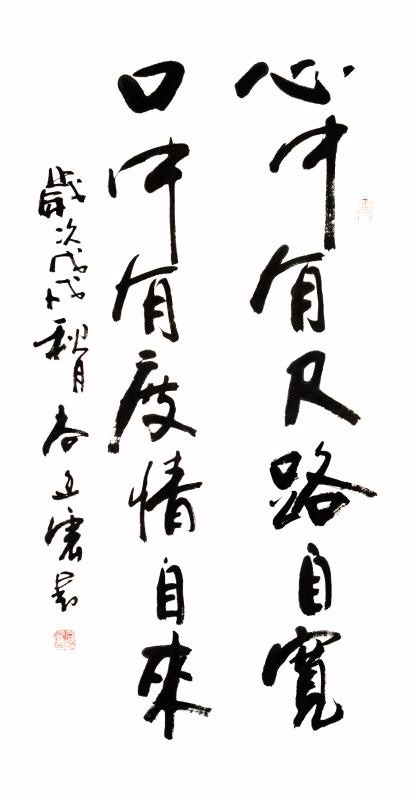 心中有尺路自寬
口中有度情自來
歲次戊戌秋月